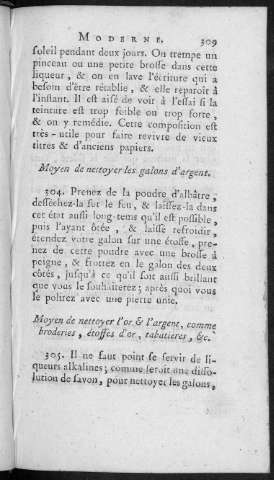 MODERNE. 309
soleil pendant deux jours. On trempe un
pinceau ou une petite brosse dans cette
liqueur, & on en lave l'écriture qui a
besoin d'être rétablie, & elle reparoît à
l'instant. Il est aisé de voir à l'essai si la
teinture est trop foible ou trop forte,
& on y remédie. Cette composition est
très-utile pour faire revivre de vieux
titres & d'anciens papiers.
Moyen de nettoyer les galons d'argent.
304. Prenez de la poudre d'albâtre,
desséchez-la sur le feu, & laissez-la dans
cet état aussi long-tems qu'il est possible,
puis l'ayant ôtée, & laissé refroidir,
étendez votre galon sur une étoffe, pre-
nez de cette poudre avec une brosse à
peigne, & frottez en le galon des deux
côtés, jusqu'à ce qu'il soit aussi brillant
que vous le souhaiterez; après quoi vous
le polirez avec une pierre unie.
Moyen de nettoyer l'or & l'argent, comme
broderies, étoffes d'or, tabatieres, &c.
305. Il ne faut point se servir de li-
queurs alkalines; comme seroit une disso-
lution de savon, pour nettoyer les galons,